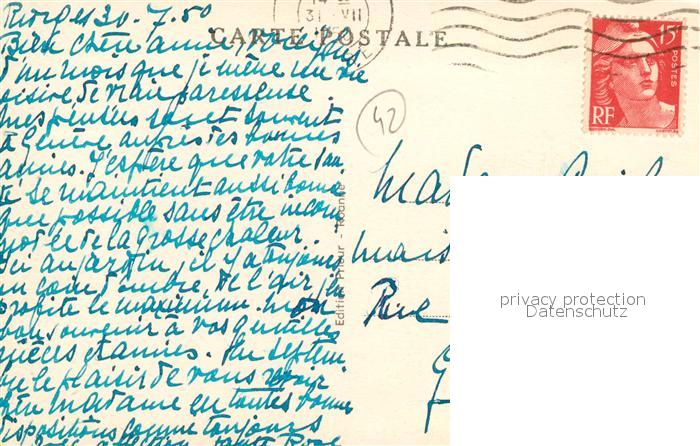 Riorges 30-7.50
Bien chère amie, voici plus
d'un mois que je mène une vie
oisive de vraie paresseuse.
mes pensées vont souvent
à Genève auprès des bonnes
amies. J'espère que votre san
té se maintient aussi bonne
que possible sans être incom
modée de la grosse chaleur.
Ici au jardin, il y a toujours
un coin d'ombre. De l'air, j'en
profite le maximum. mon
bon souvenir à vos gentilles
nièces et amies. En septem
bre le plaisir de vous revoir
chère madame en toutes bonnes
dispositions comme toujours
CARTE POSTALE
31 VII
42
15F
POSTES
RF
Edition Prieur - Roanne
mad
mais
Rue
G
privacy protection
Datenschutz